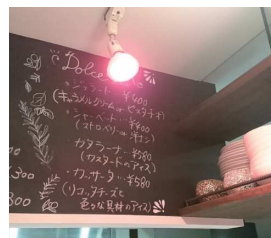 Dolce
・ジェラート… ¥400
(キャラメルクリーム or ピスタチオ)
・シャーベット… ¥400
(ストロベリー or
カタラーナ… ¥580
(カスタードのアイス)
・カッサータ… ¥580
(リコッタチーズと
色々な具材のアイス)
300
800